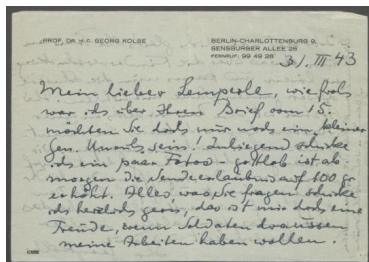 PROF. DR. H.C. GEORG KOLBE
BERLIN-CHARLOTTENBURG 9,
SENSBURGER ALLEE 26
FERNRUF: 99 49 28
31. III 43
Mein lieber Lemperle, wie froh
war ich über Ihren Brief vom 15.
möchten Sie doch nur noch ein kleiner
Gen. sein! Inliegend schicke
ich ein paar Fotos - gottlob ist ab
morgen die Sendeerlaubnis auf 100 gr
erhöht. Alles was Sie fragen schicke
ich herzlich gern, das ist mir doch eine
Freude, wenn Soldaten draussen
meine Arbeiten haben wollen.